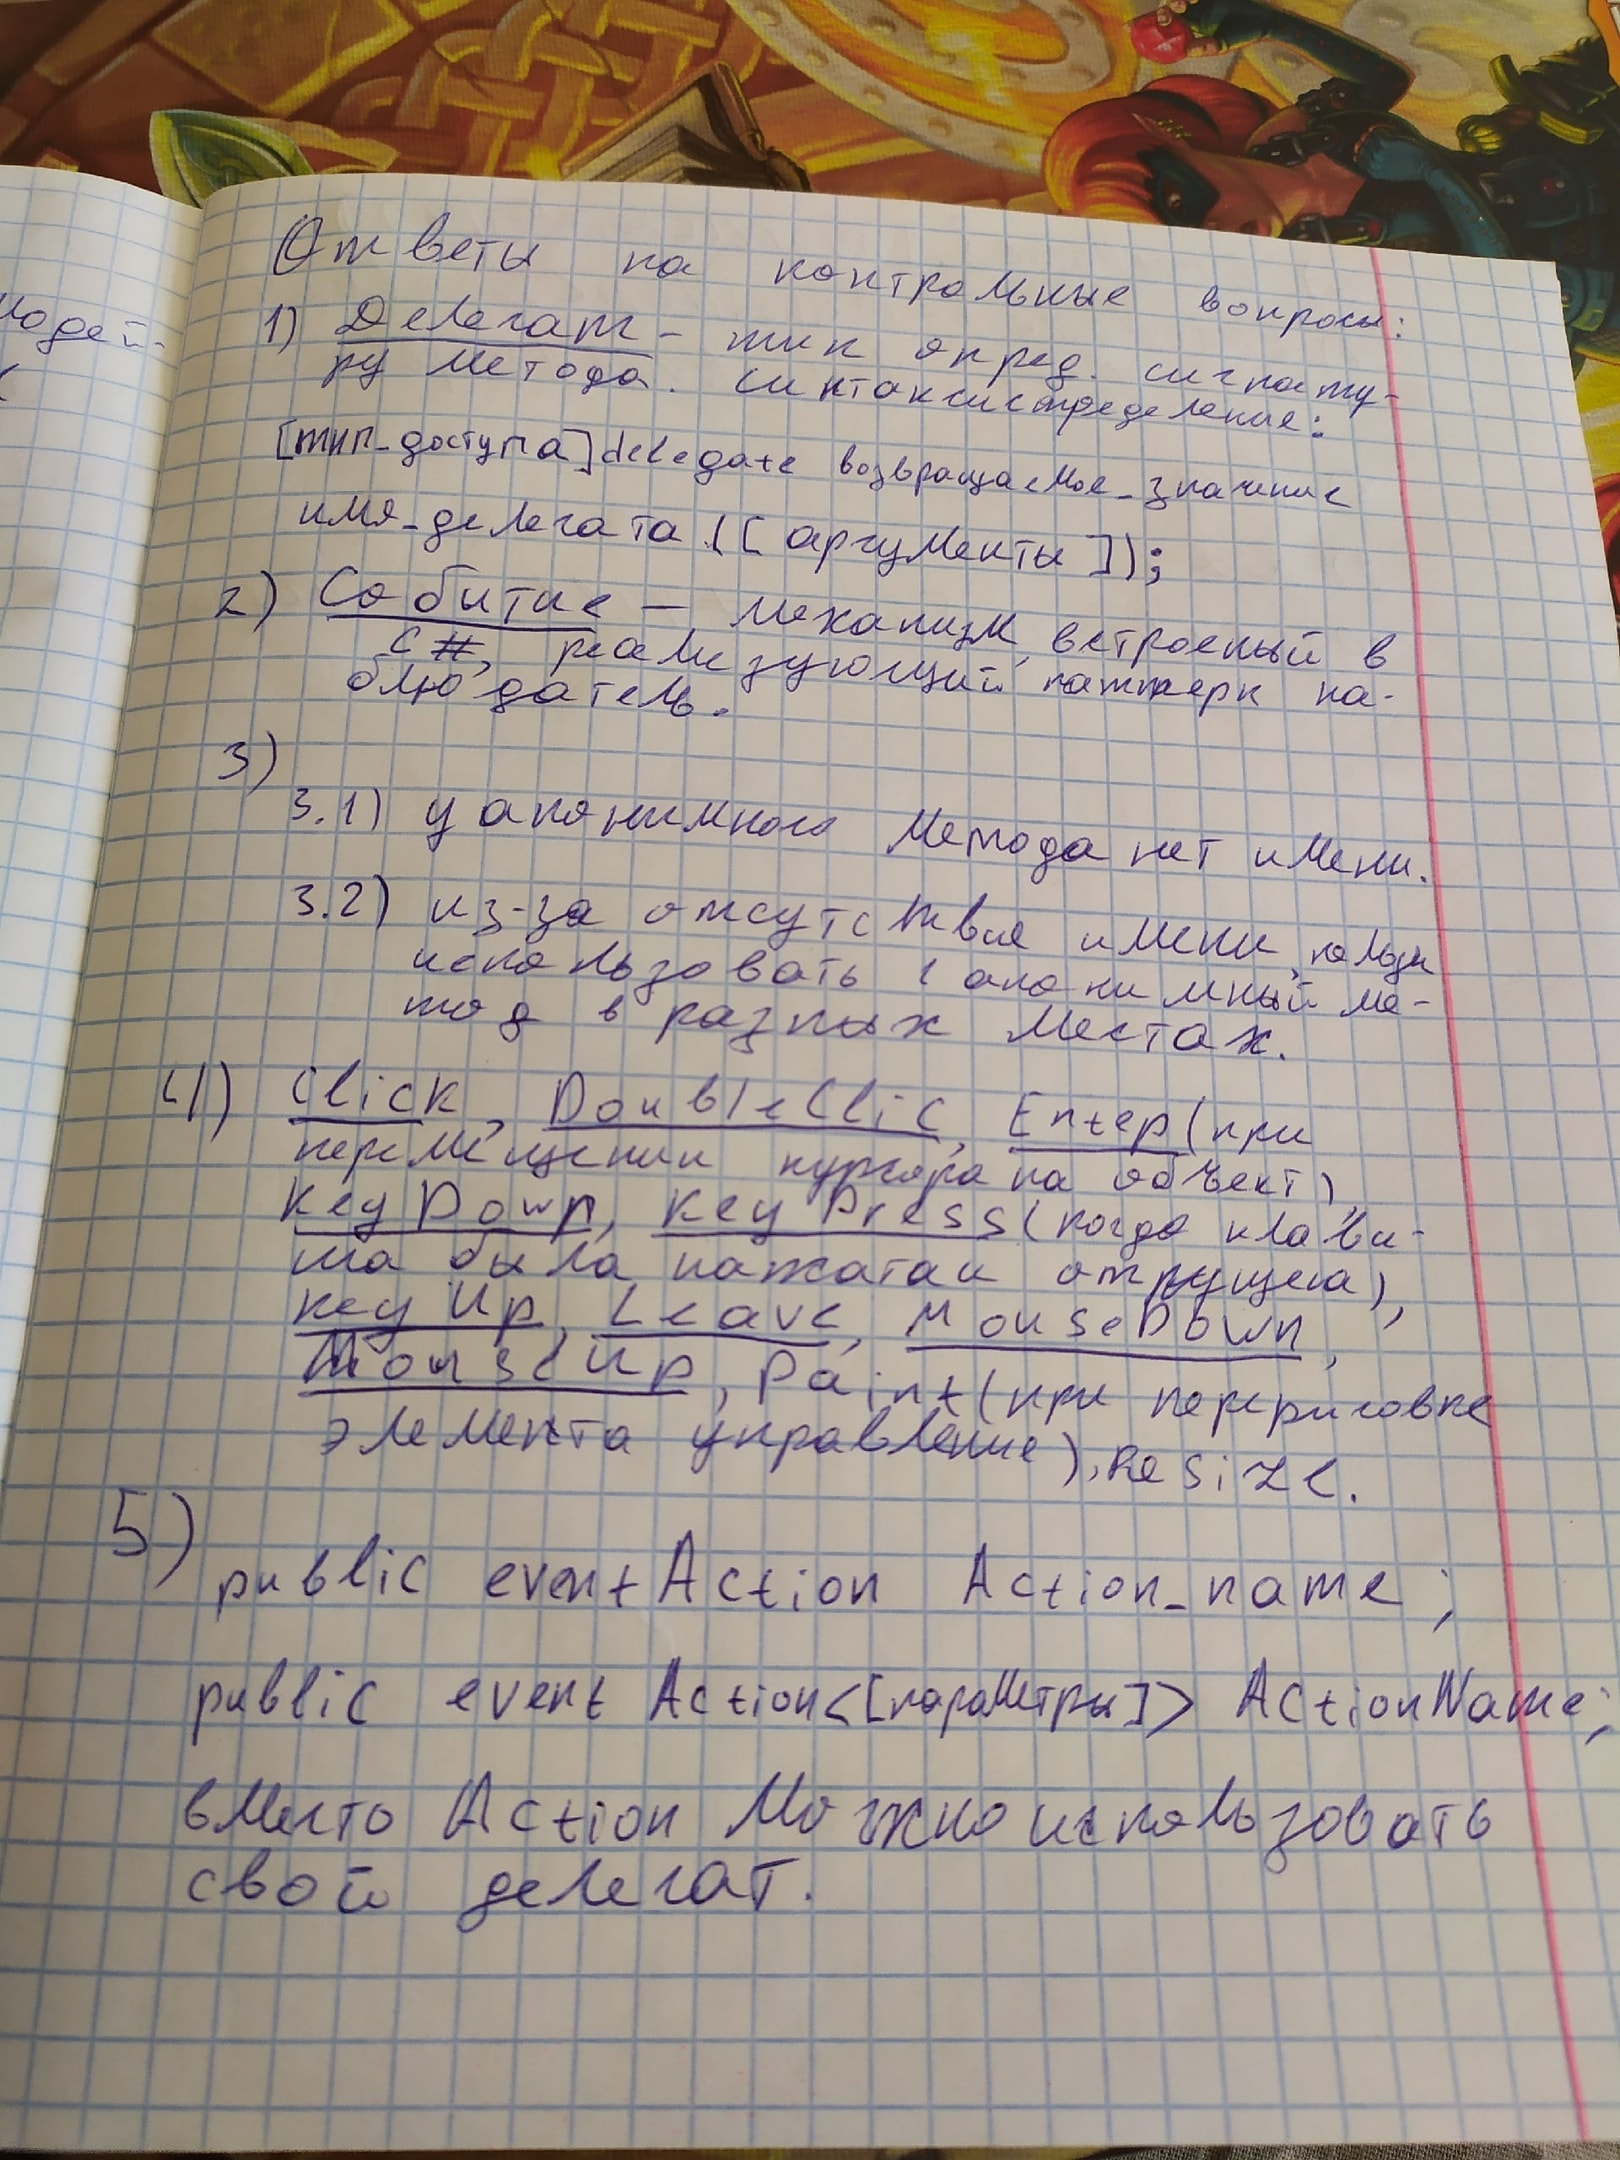 Ответы на контрольные вопросы:
1) Делегат - тип опред. сигнату-
ру метода. Синтаксис определение:
[тип_доступа] delegate возвращаемое_значение
имя_делегата ([аргументы]);
2) Событие — механизм, встроеный в
C#, реализующий паттерн на-
блюдатель.
3)
3.1) у анонимного метода нет имени.
3.2) из-за отсутствия имени, нельзя
использовать 1 анонимный ме-
тод в разных местах.
4) Click, DoubleClic, Enter (при
перемещении курсора на объект),
KeyDown, KeyPress (когда клави-
ша была нажата и отпущена),
KeyUp, Leave, MouseDown,
MouseUp, Paint (при перерисовке
элемента управление), Resize.
5)
public event Action Action_name;
public event Action<[параметры]> ActionName;
вместо Action можно использовать
свой делегат.